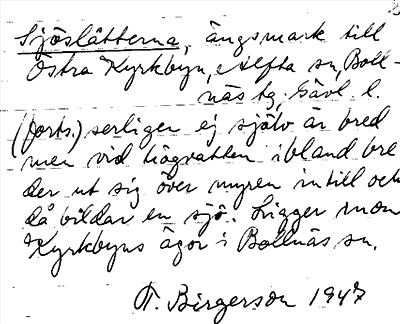 Sjöslåtterna, ängsmark till
Östra Kyrkbyn, Alfta sn, Boll-
näs tg, Gävl. l.
(forts.) serligen ej själv är bred
men vid högvatten ibland bre
der ut sig över myren intill och
då bildar en sjö. Ligger inom
Kyrkbyns ägor i Bollnäs sn.
T. Birgerson 1947